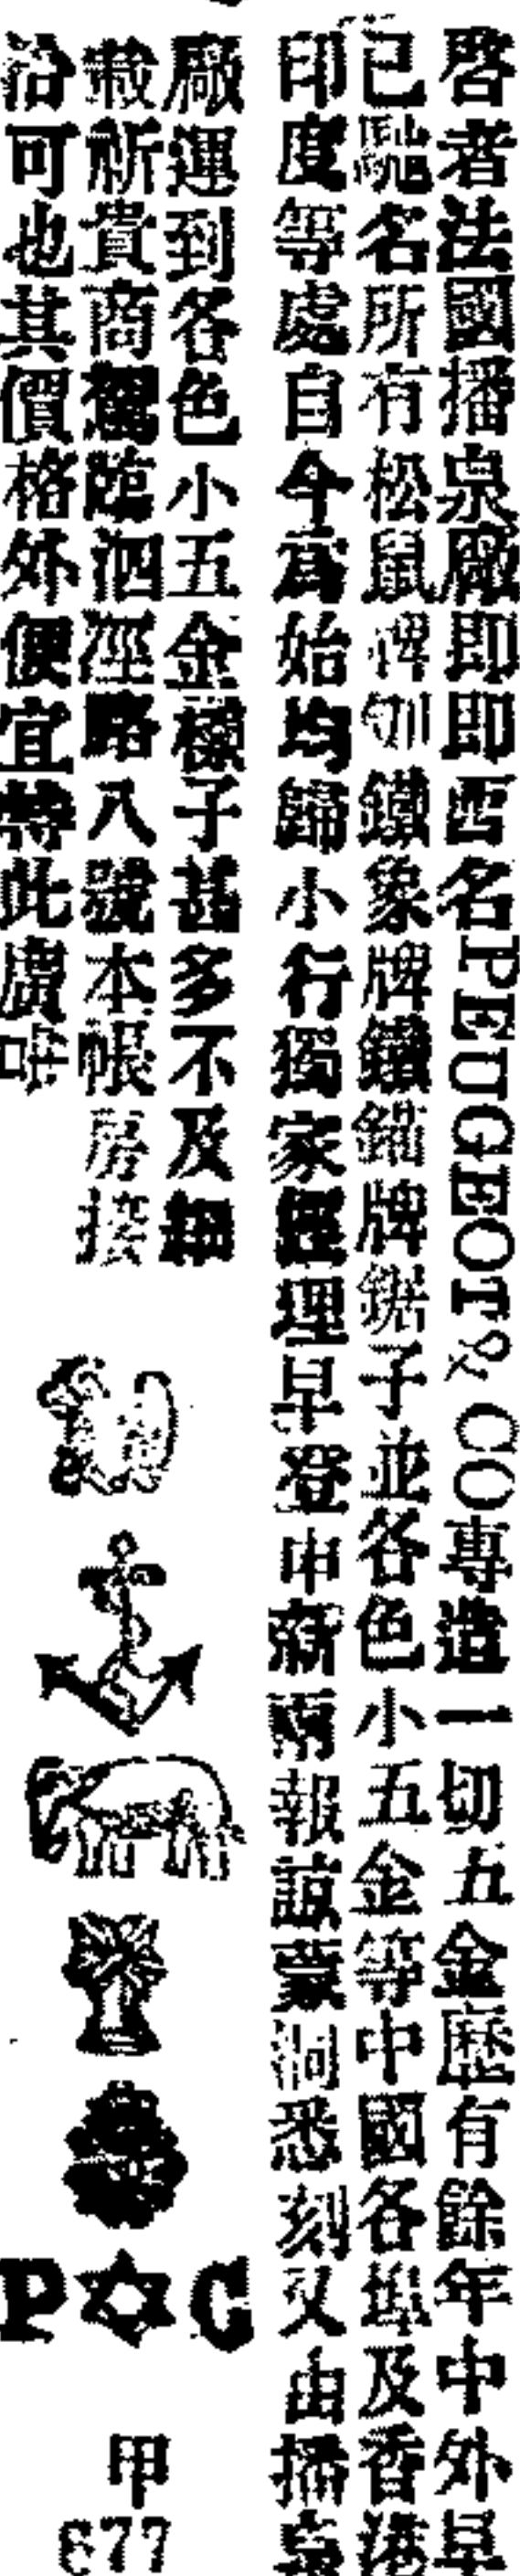 啓者法國播泉廠即即西名PEUGEOT&CO專造一切五金歷有餘年中外早
已馳名所有松鼠牌鋼鐵象牌鑽錨牌鋸子並各色小五金等中國各埠及香港
印度等處自今為始均歸小行獨家經理早登申新兩報諒蒙洞悉刻又由播泉
廠運到各色小五金樣子甚多不及細
載祈貴商駕臨泗涇路八號本帳房接
洽可也其價格外便宜特此廣告
P C
甲
677